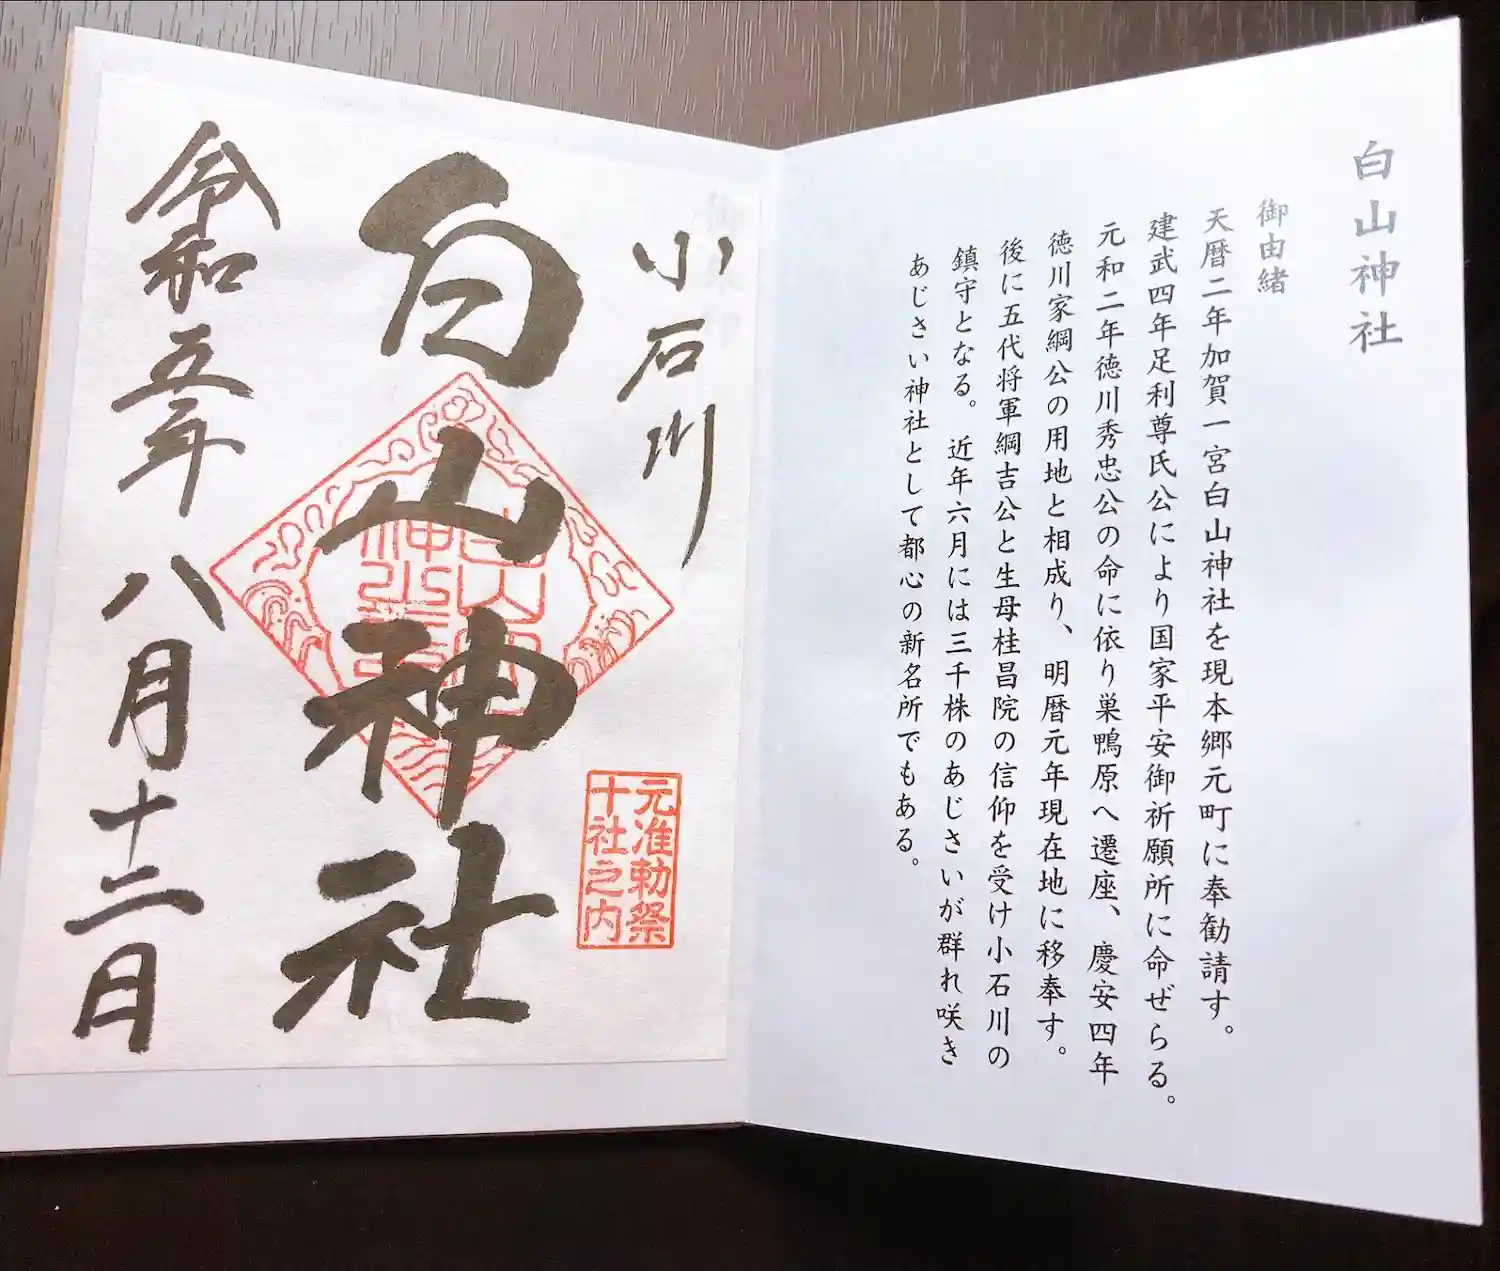 白山神社
御由緒
天暦二年加賀一宮白山神社を現本郷元町に奉勧請す。
建武四年足利尊氏公により国家平安御祈願所に命ぜらる。
元和二年徳川秀忠公の命に依り巣鴨原へ遷座、慶安四年
徳川家綱公の用地と相成り、明暦元年現在地に移奉す。
後に五代将軍綱吉公と生母桂昌院の信仰を受け小石川の
鎮守となる。近年六月には三千株のあじさいが群れ咲き
あじさい神社として都心の新名所でもある。
小石川
元准勅祭
十社之内
白山神社
令和五年八月十二日